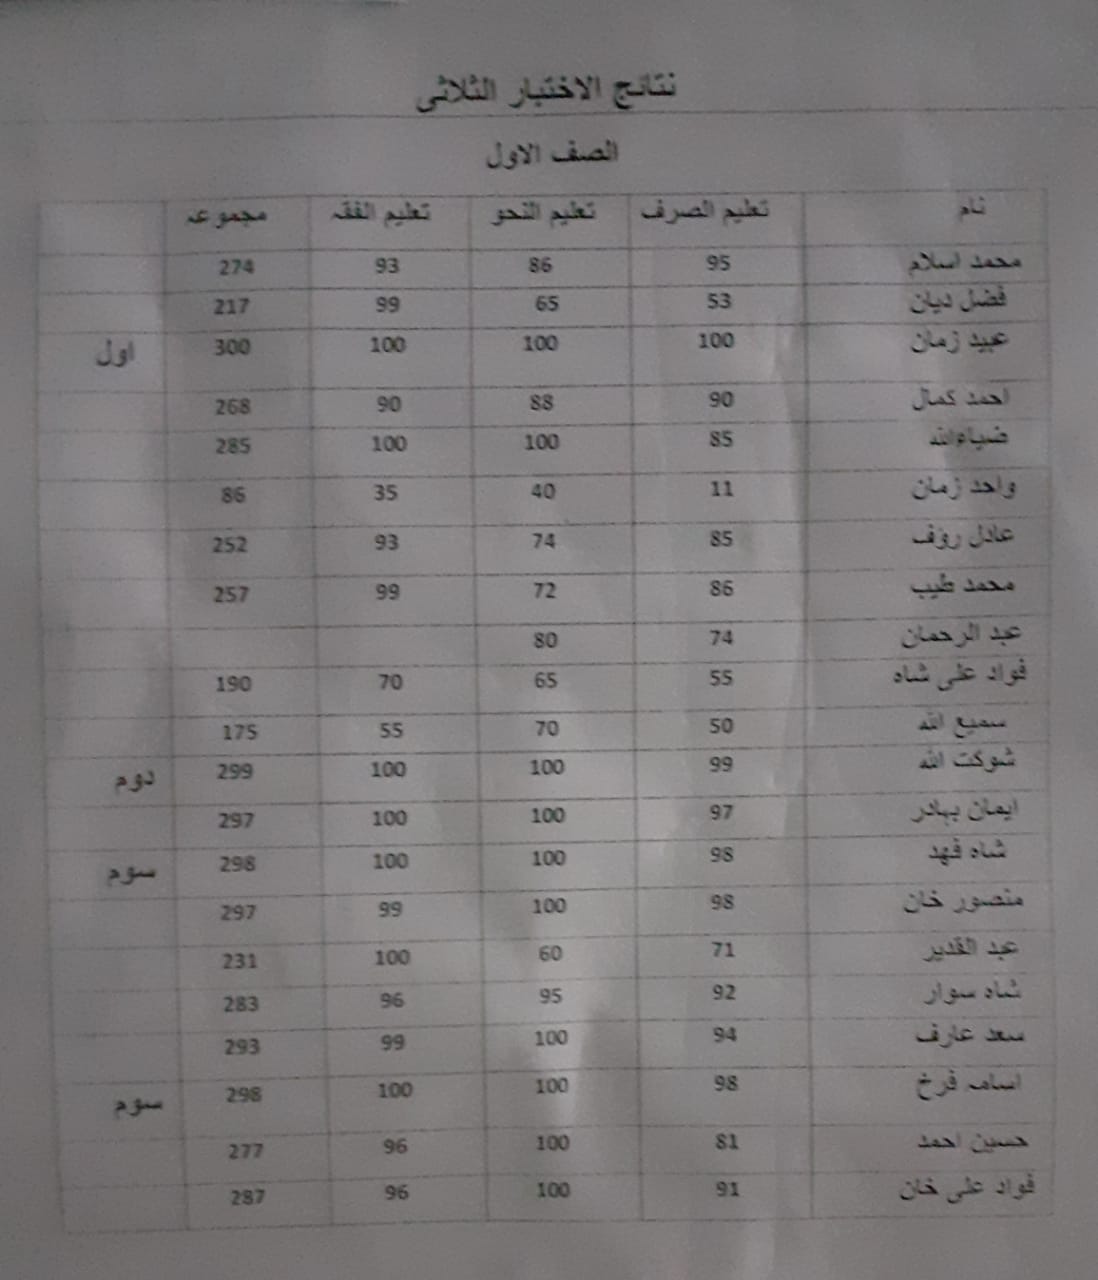 نتائج الاختبار الثلاثى
الصف الاول
نام تعليم الصرف تعليم النحو تعليم الفقہ مجموعہ
محمد اسلام 95 86 93 274
فضل ديان 53 65 99 217
عبيد زمان 100 100 100 300 اول
احمد كمال 90 88 90 268
ضياءالله 85 100 100 285
واحد زمان 11 40 35 86
عادل رؤف 85 74 93 252
محمد طيب 86 72 99 257
عبد الرحمان 74 80
فواد على شاه 55 65 70 190
سميع الله 50 70 55 175
شوكت الله 99 100 100 299 دوم
ايمان بہادر 97 100 100 297
شاه فہد 98 100 100 298 سوم
منصور خان 98 100 99 297
عبد القدير 71 60 100 231
شاه سوار 92 95 96 283
سعد عارف 94 100 99 293
اسامہ فرخ 98 100 100 298 سوم
حسين احمد 81 100 96 277
فواد على خان 91 100 96 287